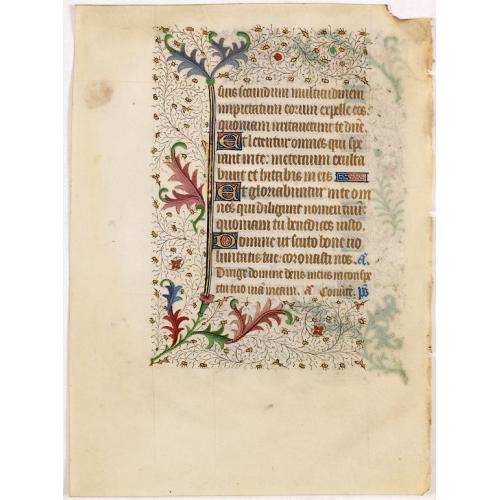 suis secundum multitudinem
impietatum eorum expelle eos
quoniam irritaverunt te dñe.
Et letentur omnes qui spe
rant in te: in eternum exulta
bunt et habitabis in eis
Et gloriabuntur in te om
nes qui diligunt nomen tuũ
quoniam tu benedices iusto.
Domine ut scuto bone vo
luntatis tue: coronasti nos. a.
Dirige domine deus meus in conspe
ctu tuo viã meam. a. Convẽte. ps